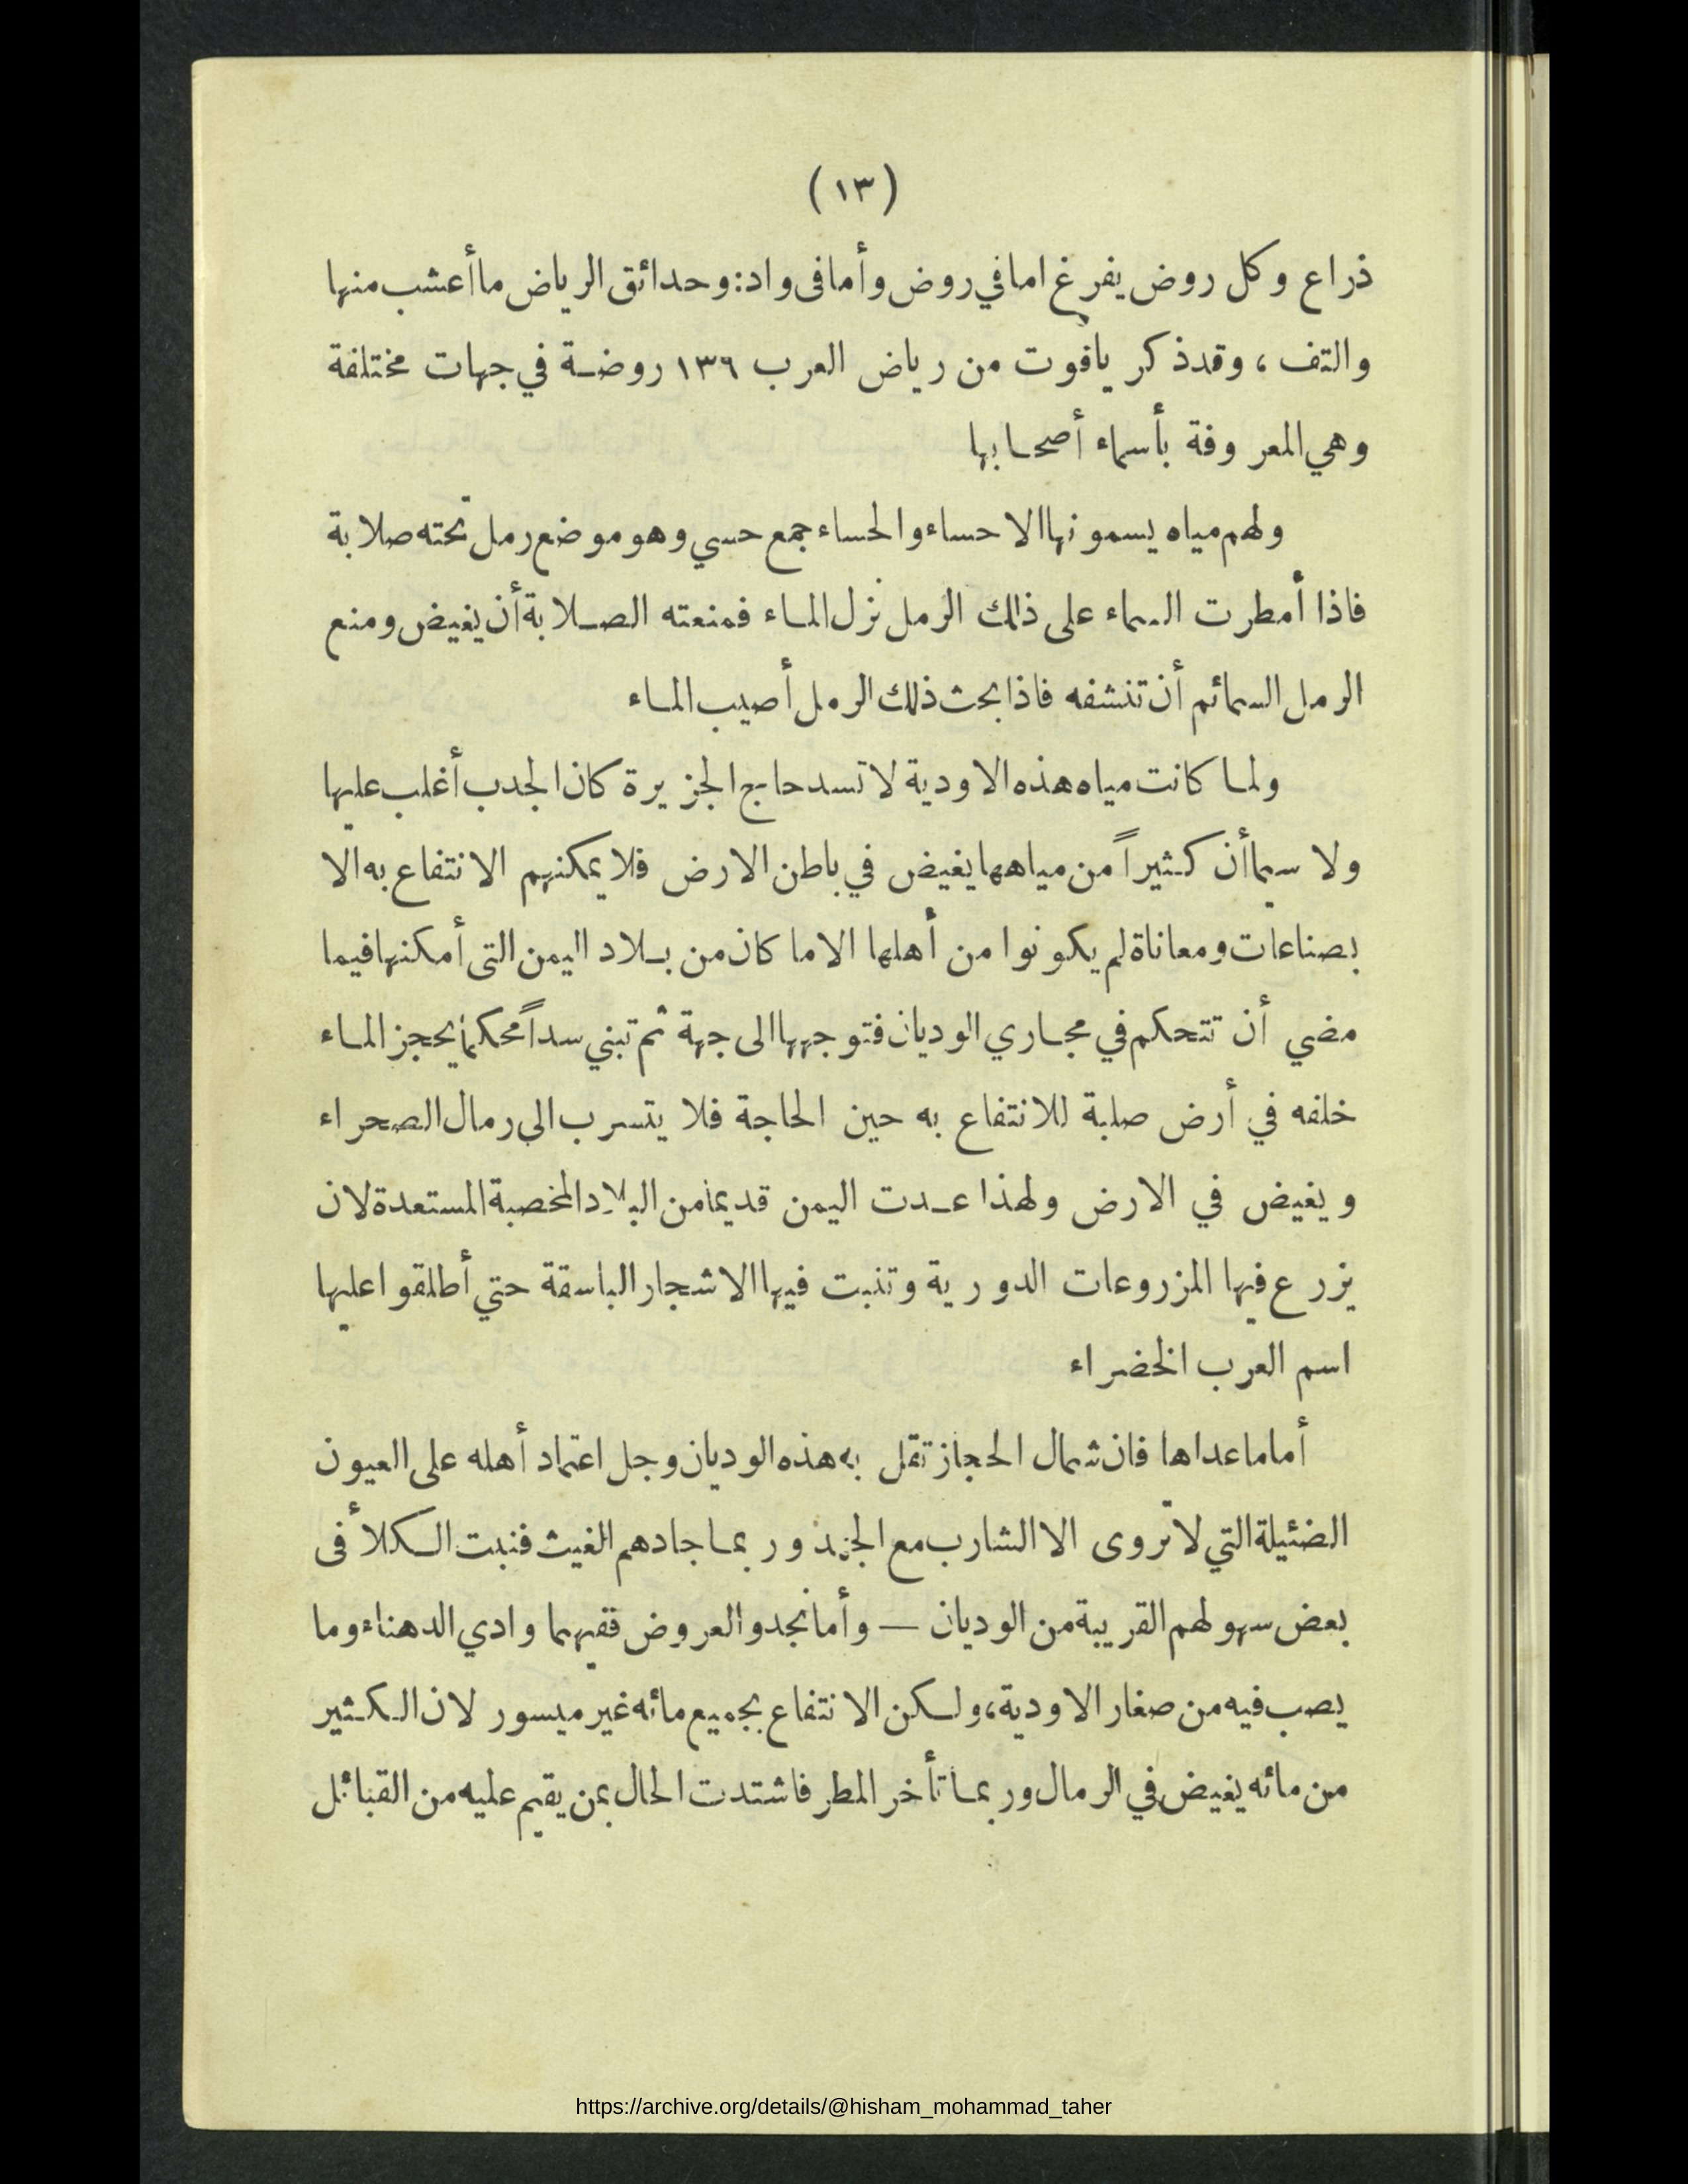 (١٣)
ذراع وكل روض يفرغ اما في روض وأما فى واد: وحدائق الرياض ما أعشب منها
والتف ، وقد ذكر ياقوت من رياض العرب ١٣٦ روضة في جهات مختلفة
وهي المعروفة بأسماء أصحابها
ولهم مياه يسمونها الاحساء والحساء جمع حسي وهو موضع رمل تحته صلابة
فاذا أمطرت السماء على ذلك الرمل نزل الماء فمنعته الصلابة أن يغيض ومنع
الرمل السمائم أن تنشفه فاذا بحث ذلك الرمل أصيب الماء
ولما كانت مياه هذه الاودية لا تسد حاج الجزيرة كان الجدب أغلب عليها
ولا سيما أن كثيراً من مياهها يغيض في باطن الارض فلا يمكنهم الانتفاع به الا
بصناعات ومعاناة لم يكونوا من أهلها الا ما كان من بلاد اليمن التى أمكنها فيما
مضي أن تتحكم في مجاري الوديان فتوجهها الى جهة ثم تبني سداً محكما يحجز الماء
خلفه في أرض صلبة للانتفاع به حين الحاجة فلا يتسرب الى رمال الصحراء
ويغيض في الارض ولهذا عدت اليمن قديما من البلاد المخصبة المستعدة لان
يزرع فيها المزروعات الدورية وتنبت فيها الاشجار الباسقة حتي أطلقوا عليها
اسم العرب الخضراء
أما ما عداها فان شمال الحجاز تقل به هذه الوديان وجل اعتماد أهله على العيون
الضئيلة التي لا تروى الا الشارب مع الجهد وربما جادهم الغيث فنبت الكلأ فى
بعض سهولهم القريبة من الوديان — وأما نجد والعروض ففيهما وادي الدهناء وما
يصب فيه من صغار الاودية، ولكن الانتفاع بجميع مائه غير ميسور لان الكثير
من مائه يغيض في الرمال وربما تأخر المطر فاشتدت الحال بمن يقيم عليه من القبائل
https://archive.org/details/@hisham_mohammad_taher